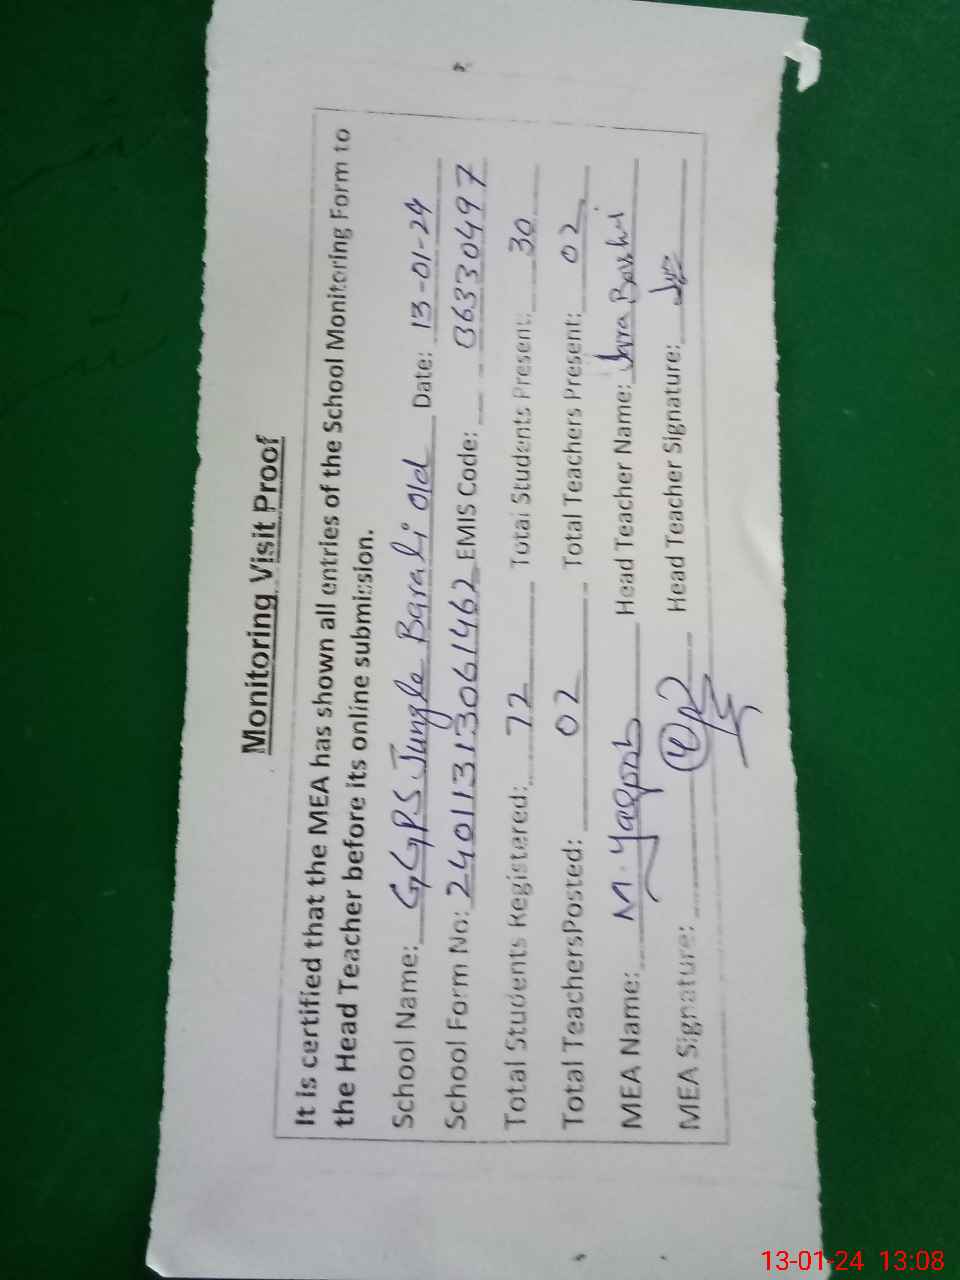 Monitoring Visit Proof
It is certified that the MEA has shown all entries of the School Monitoring Form to
the Head Teacher before its online submission.
School Name: GGPS Jungle Barali Old Date: 13-01-24
School Form No: 24011313061462 EMIS Code: 36330497
Total Students Registered: 72 Total Students Present: 30
Total TeachersPosted: 02 Total Teachers Present: 02
MEA Name: M. Yaqoob Head Teacher Name:
MEA Signature: Head Teacher Signature:
13-01-24 13:08